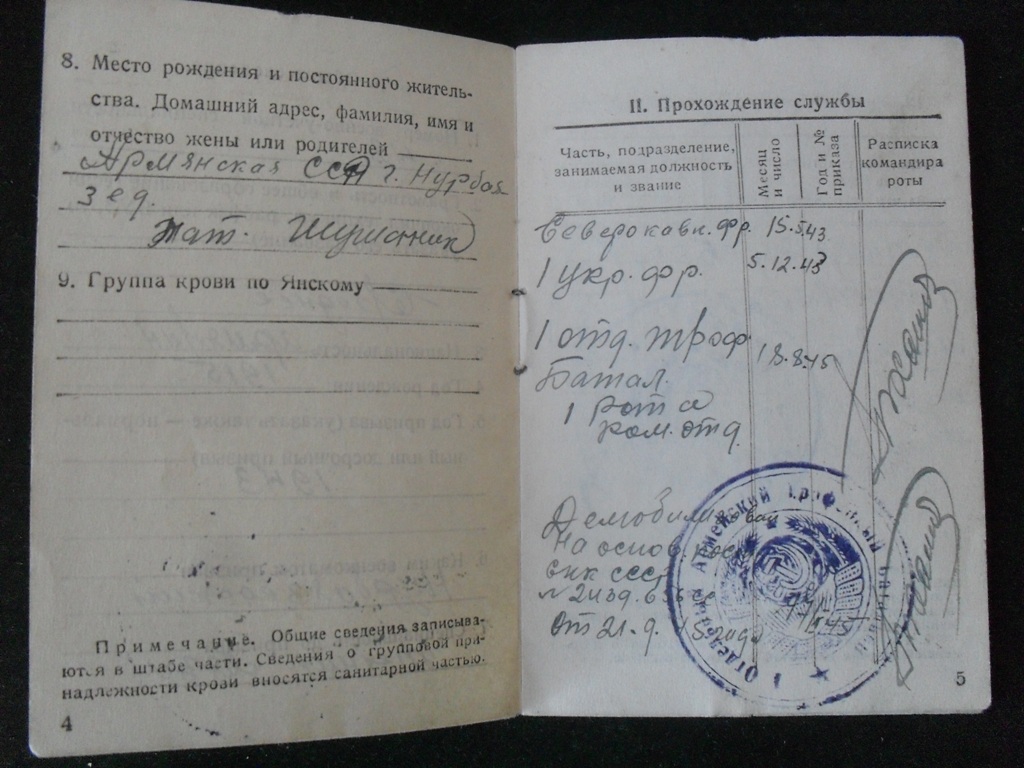 8. Место рождения и постоянного житель-
ства. Домашний адрес, фамилия, имя и
отчество жены или родителей
Армянская ССР г. Нурбая
зед.
мат. Шушаник
9. Группа крови по Янскому
Примечание. Общие сведения записыва-
ются в штабе части. Сведения о групповой при-
надлежности крови вносятся санитарной частью.
4
II. Прохождение службы
Часть, подразделение,
занимаемая должность
и звание
Месяц
и число
Год и №
приказа
Расписка
командира
роты
Северокавк. фр. 15.5.43
1 укр. фр. 5.12.43
1 отд. троф 18.8.45
Батал.
1 рота
ком. отд.
на основ
снк ссср
от 21.9.
Отдельный Армейский Трофейный батальон
5